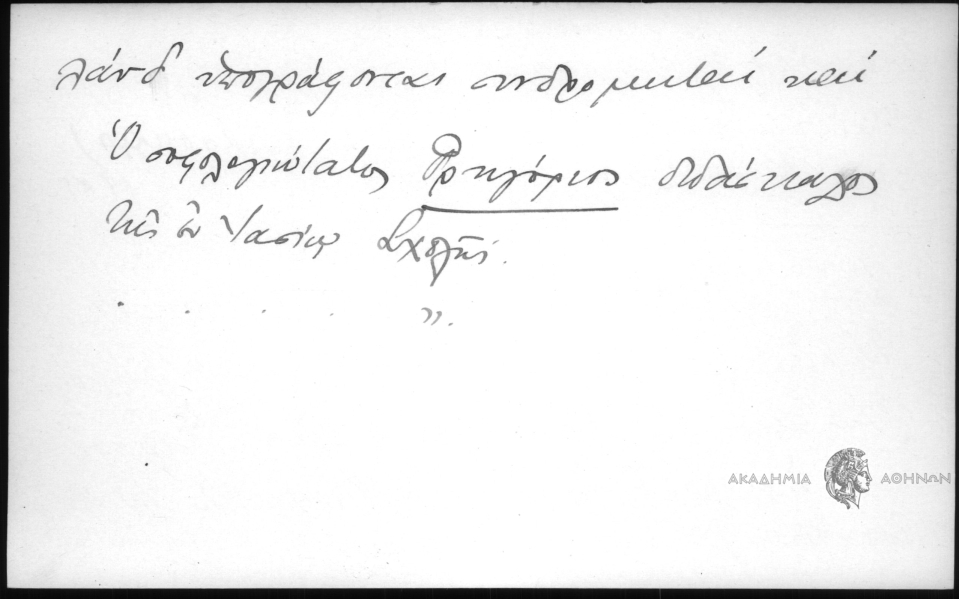 λάνδ ὑπογράφονται συνδρομηταί καί
Ὁ σοφολογιώτατος Γρηγόριος διδάσκαλος
τῆς ἐν Ἰασίῳ Σχολῆς.
. . . . ».
ΑΚΑΔΗΜΙΑ ΑΘΗΝΩΝ